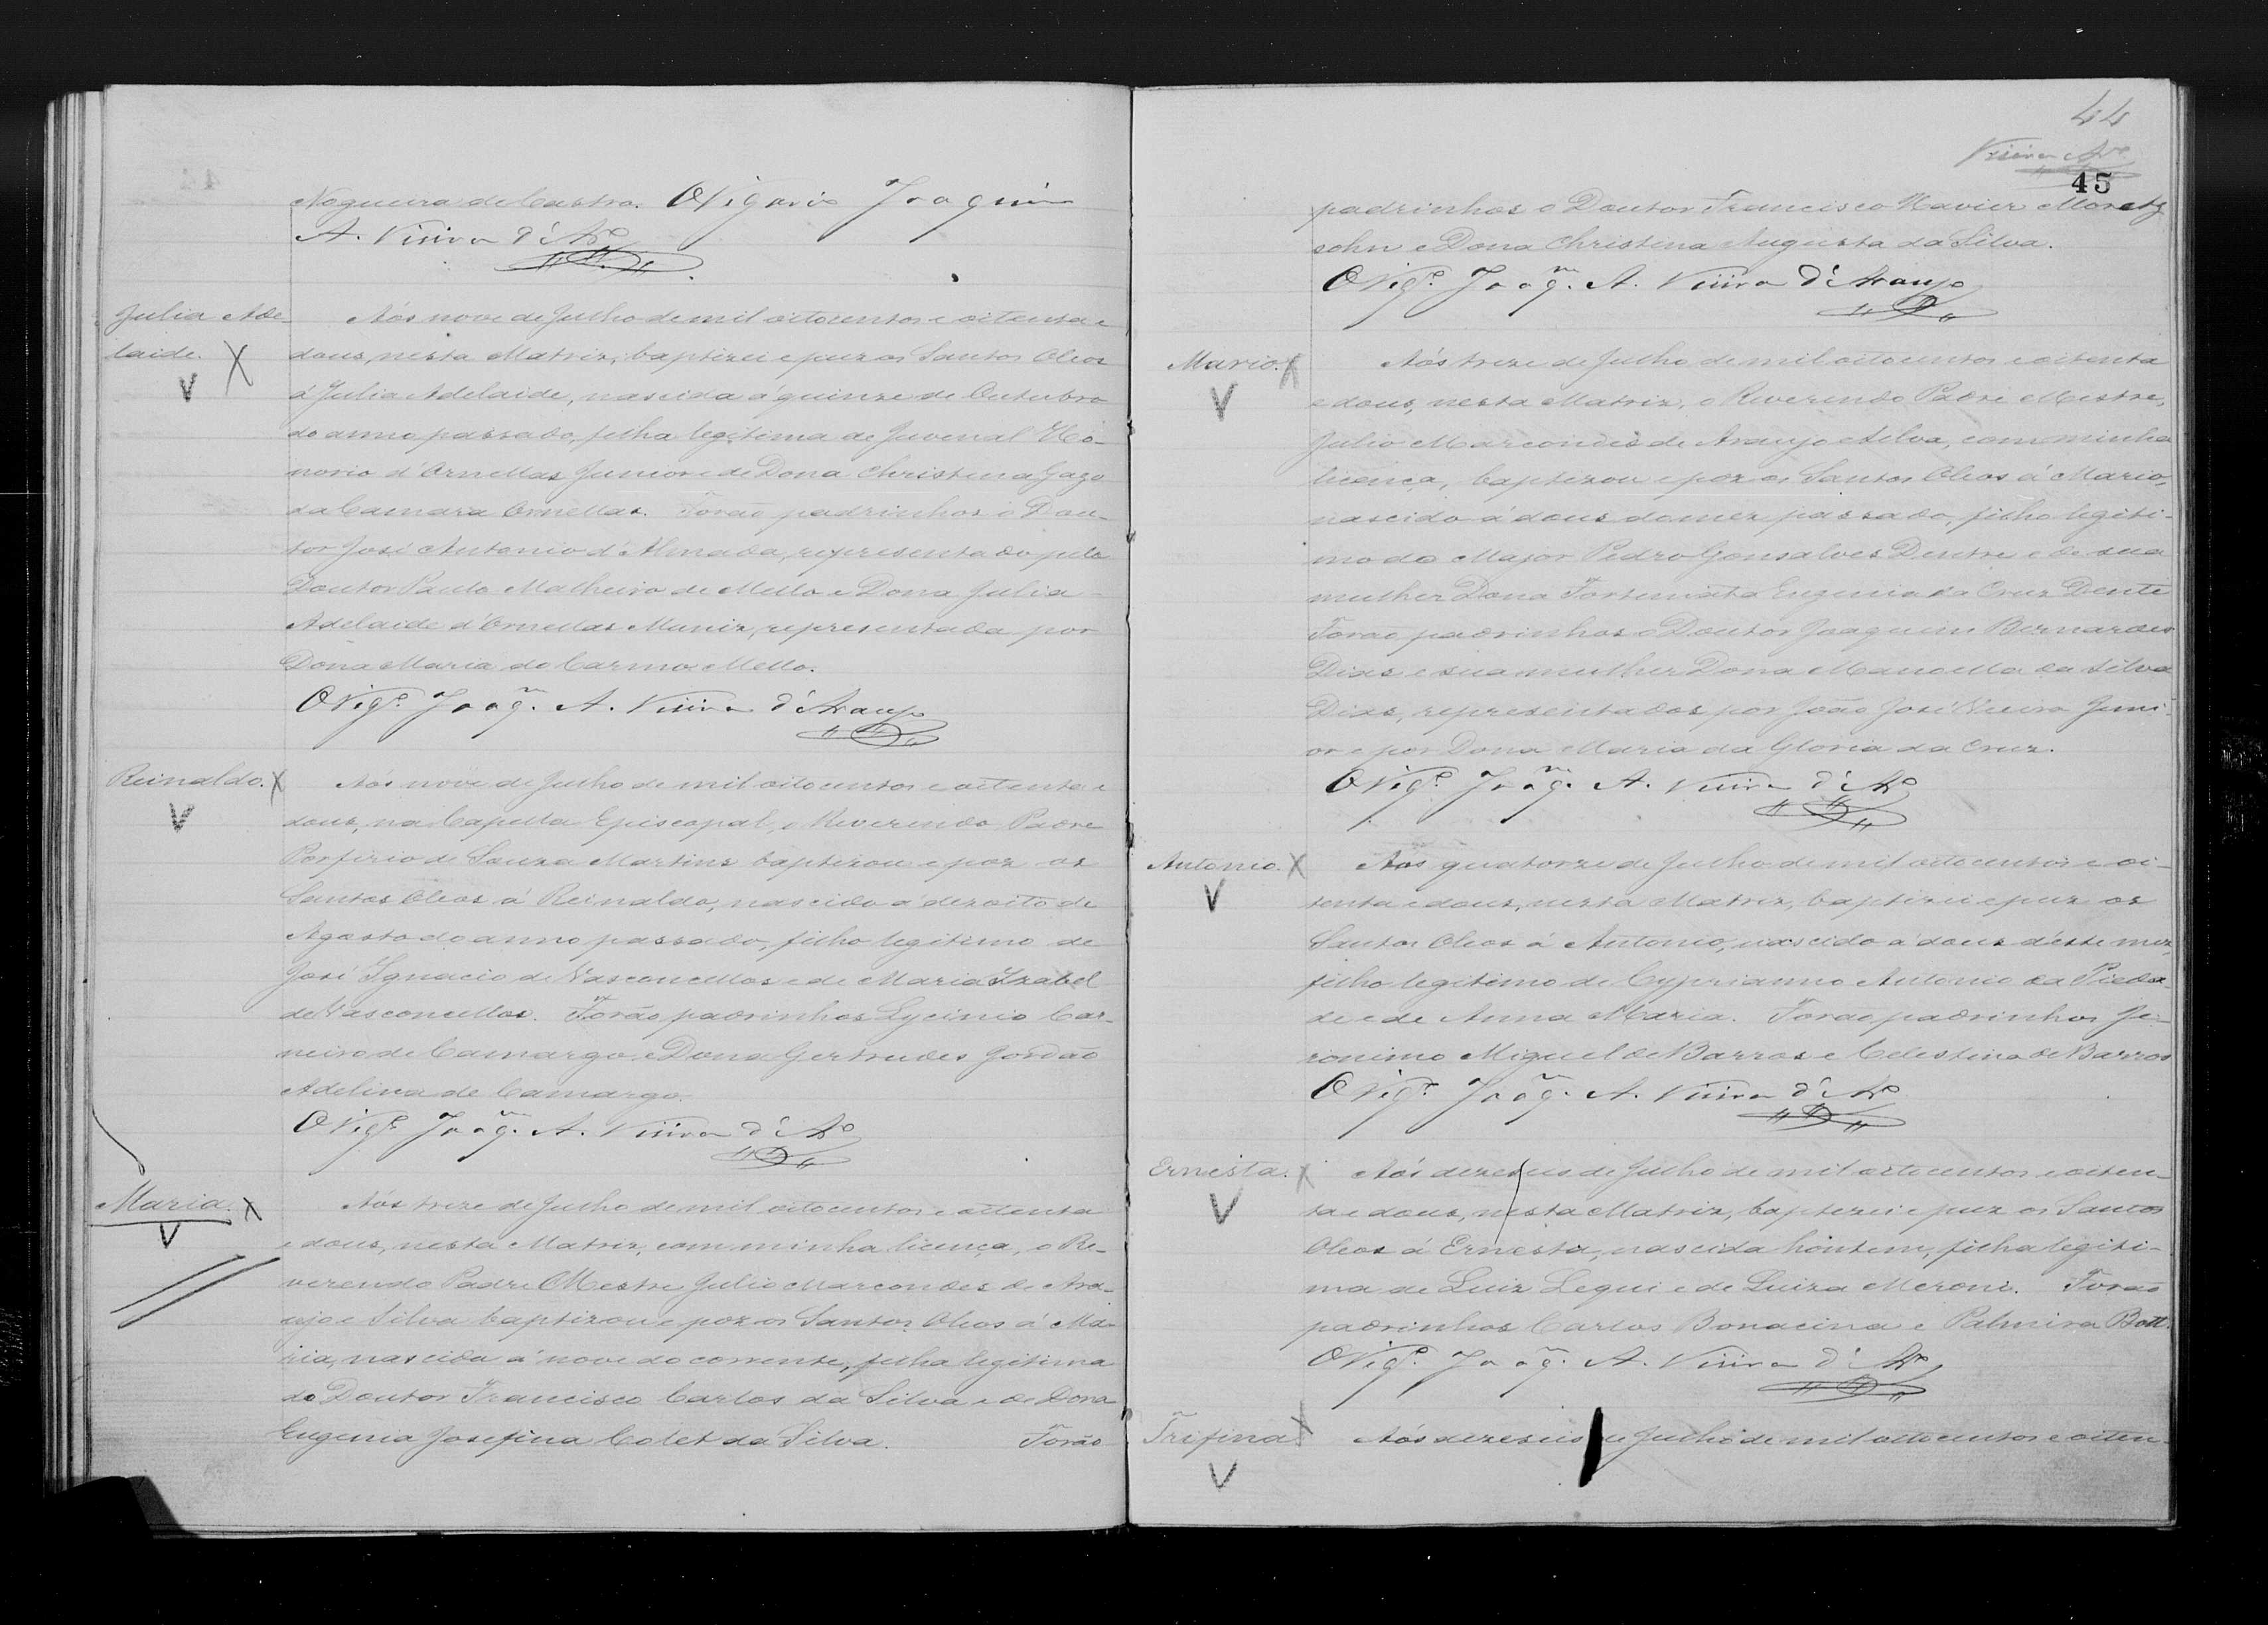 Nogueira de Castro. O Vigario Joaquim
A. Vieira d'Ar.º
Julia Ade-
laide.
Aós nove de Julho de mil oitocentos e oitenta e
dous, nesta Matriz, baptizei e puz os Santos Oleos
á Julia Adelaide, nascida á quinze de Outubro
do anno passado, filha legitima de Juvenal Ho-
norio d'Ornellas Junior e de Dona Christina Gago
da Camara Ornellas. Forão padrinhos o Dou-
tor José Antonio d'Almada, representado pelo
Doutor Paulo Malheiro de Mello e Dona Julia
Adelaide d'Ornellas Muniz, representada por
Dona Maria do Carmo Mello.
O Vigº. Joaqm. A. Vieira d'Araujo
Reinaldo.
Aós nove de Julho de mil oitocentos e oitenta e
dous, na Capella Episcopal, o Reverendo Padre
Porfirio de Souza Martins baptizou e poz os
Santos Oleos á Reinaldo, nascido á dezoito de
Agosto do anno passado, filho legitimo de
José Ignacio de Vasconcellos e de Maria Izabel
de Vasconcellos. Forão padrinhos Lycinio Car-
neiro de Camargo e Dona Gertrudes Jordão
Adelina de Camargo.
O Vigº. Joaqm. A. Vieira d'Ar.º
Maria.
Aós treze de Julho de mil oitocentos e oitenta
e dous, nesta Matriz, com minha licença, o Re-
verendo Padre Mestre Julio Marcondes de Ara-
ujo e Silva baptizou e poz os Santos Oleos á Ma-
ria, nascida á nove do corrente, filha legitima
do Doutor Francisco Carlos da Silva e de Dona
Eugenia Josefina Colet da Silva. Forão
44
Vieira Ar.º
45
padrinhos o Doutor Francisco Xavier Moretz
sohn e Dona Christina Augusta da Silva.
O Vigº. Joaqm. A. Vieira d'Araujo
Mario.
Aós treze de Julho de mil oitocentos e oitenta
e dous, nesta Matriz, o Reverendo Padre Mestre,
Julio Marcondes de Araujo e Silva, com minha
licença, baptizou e poz os Santos Oleos á Mario,
nascido á dous do mez passado, filho legiti-
mo do Major Pedro Gonsalves Dente e de sua
mulher Dona Fortunata Eugenia da Cruz Dente
Forão padrinhos o Doutor Joaquim Bernardes
Dias e sua mulher Dona Manoella da Silva
Dias, representados por João José Vieira Juni-
or e por Dona Maria da Gloria da Cruz.
O Vigº. Joaqm. A. Vieira d'Ar.º
Antonio.
Aos quatorze de Julho de mil oitocentos e oi-
tenta e dous, nesta Matriz, baptizei e puz os
Santos Oleos á Antonio, nascido á dous d'este mez,
filho legitimo de Cyprianno Antonio da Pieda-
de e de Anna Maria. Forão padrinhos Je-
ronimo Miguel de Barros e Celestina de Barros
O Vigº. Joaqm. A. Vieira d'Ar.º
Ernesta.
Aós dezeseis de Julho de mil oitocentos e oiten-
ta e dous, nesta Matriz, baptizei e puz os Santos
Oleos á Ernesta, nascida hontem, filha legiti-
ma de Luiz Legui e de Luiza Meroni. Forão
padrinhos Carlos Bonacina e Palmira Bott.
O Vigº. Joaqm. A. Vieira d'Ar.º
Trifina
Aós dezeseis de Julho de mil oitocentos e oiten-